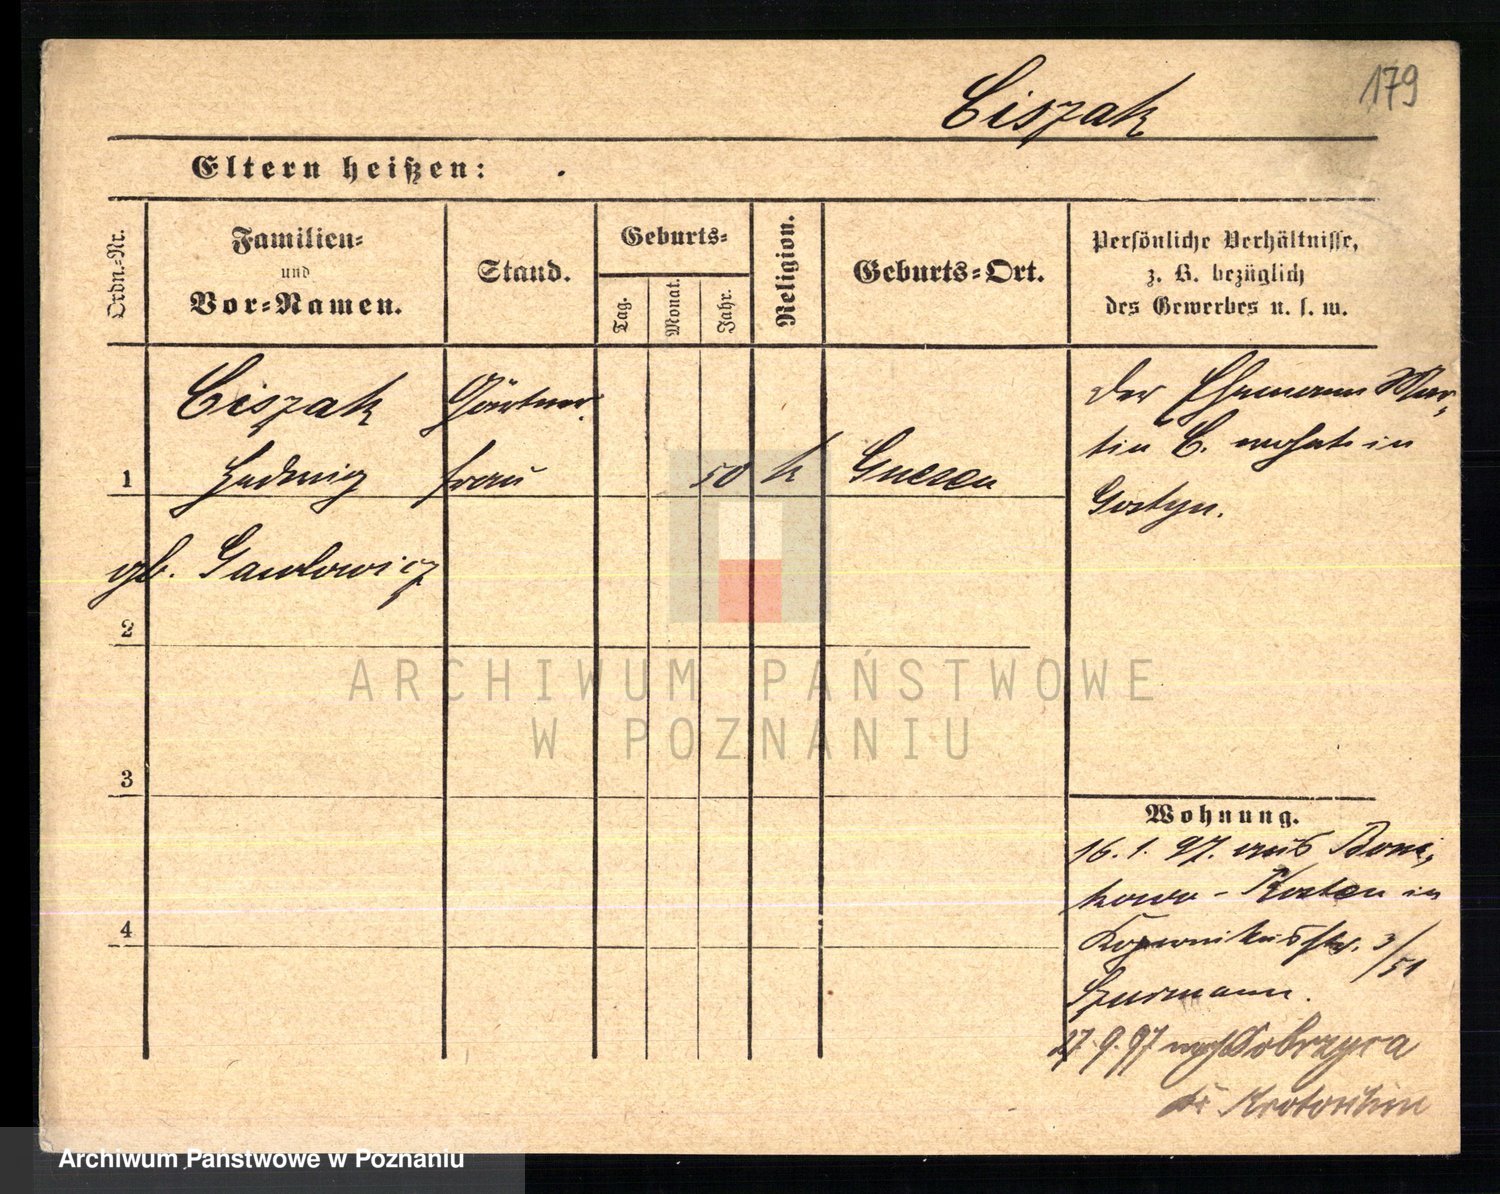 179
Ciszak
Eltern heißen:
Ordn.-Nr.
Familien-
und
Vor-Namen.
Stand.
Geburts-
Tag.
Monat.
Jahr.
Religion.
Geburts-Ort.
Persönliche Verhältnisse,
z. B. bezüglich
des Gewerbes u. s. w.
1
Ciszak
Hedwig
gb. Gawlowicz
Gärtner
frau
50
k
Gnesen
Der Ehemann Mar-
tin C. wohnt in
Gostyn.
2
3
4
Wohnung.
16. 1. 97. aus Boni-
kowo - Kosten in
Kopernikusstr. 3/51
Szurmann.
27. 9. 97 nach Dobrzyca
Kr Krotoschin
ARCHIWUM PAŃSTWOWE
W POZNANIU
Archiwum Państwowe w Poznaniu